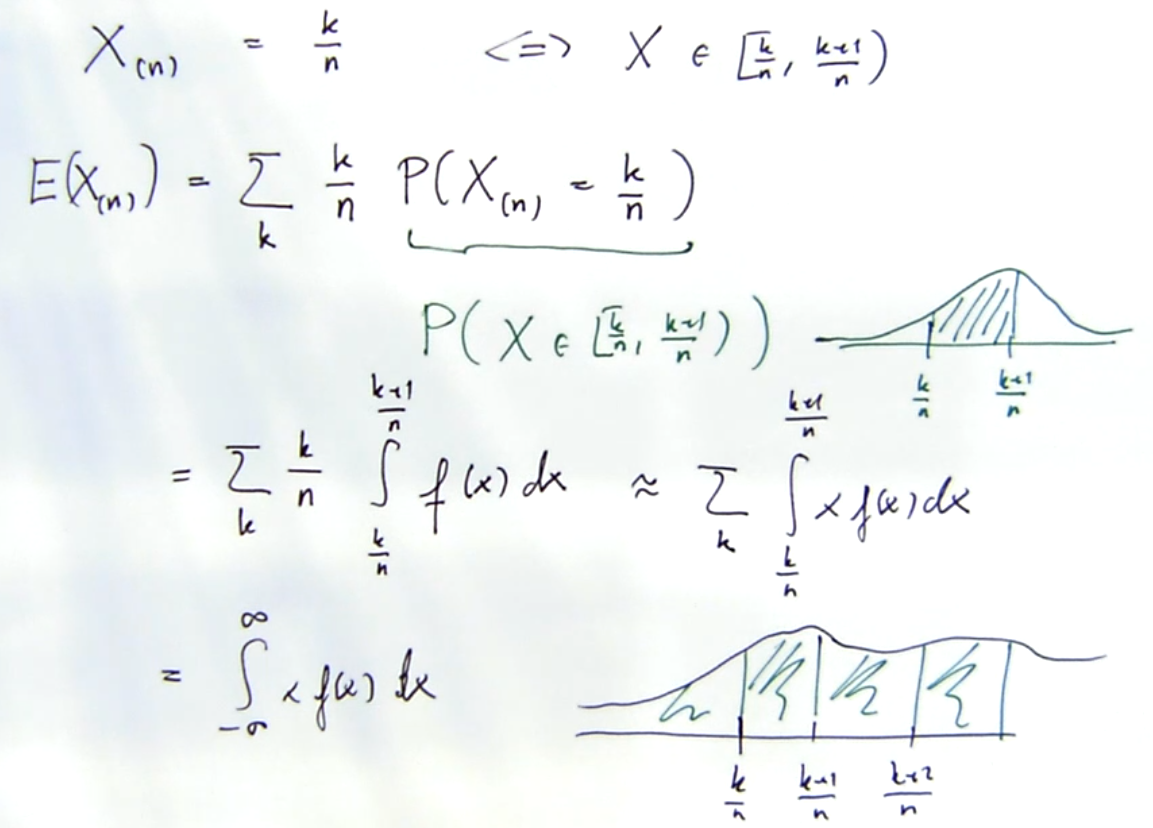 X_(n) = k/n <=> X ∈ [k/n, k+1/n)
E(X_(n)) = Σ_k k/n P(X_(n) = k/n)
P(X ∈ [k/n, k+1/n))
k/n k+1/n
= Σ_k k/n ∫_{k/n}^{k+1/n} f(x) dx ≈ Σ_k ∫_{k/n}^{k+1/n} x f(x) dx
= ∫_{-∞}^{∞} x f(x) dx
k/n k+1/n k+2/n